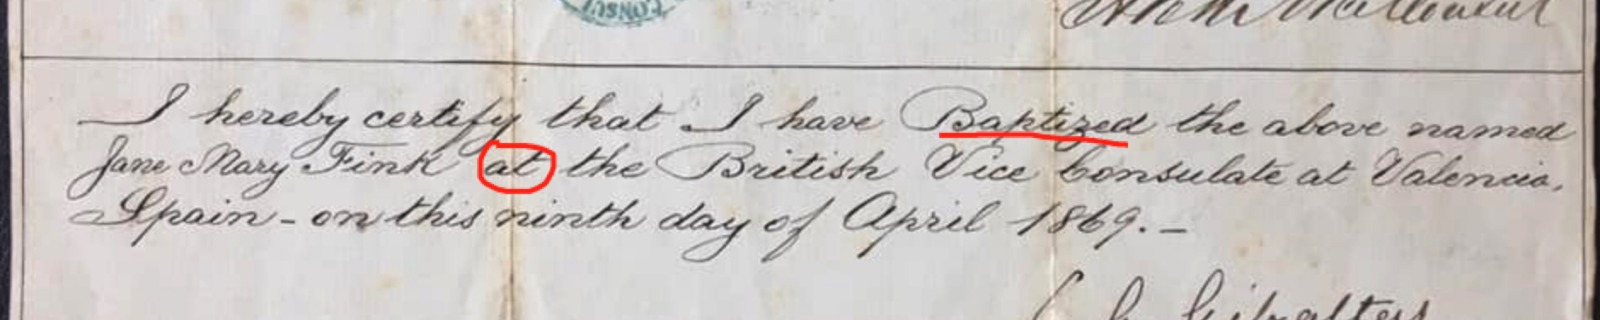 CONSUL
I hereby certify that I have Baptized the above named
Jane Mary Fink at the British Vice Consulate at Valencia,
Spain - on this ninth day of April 1869. -
Gibraltar